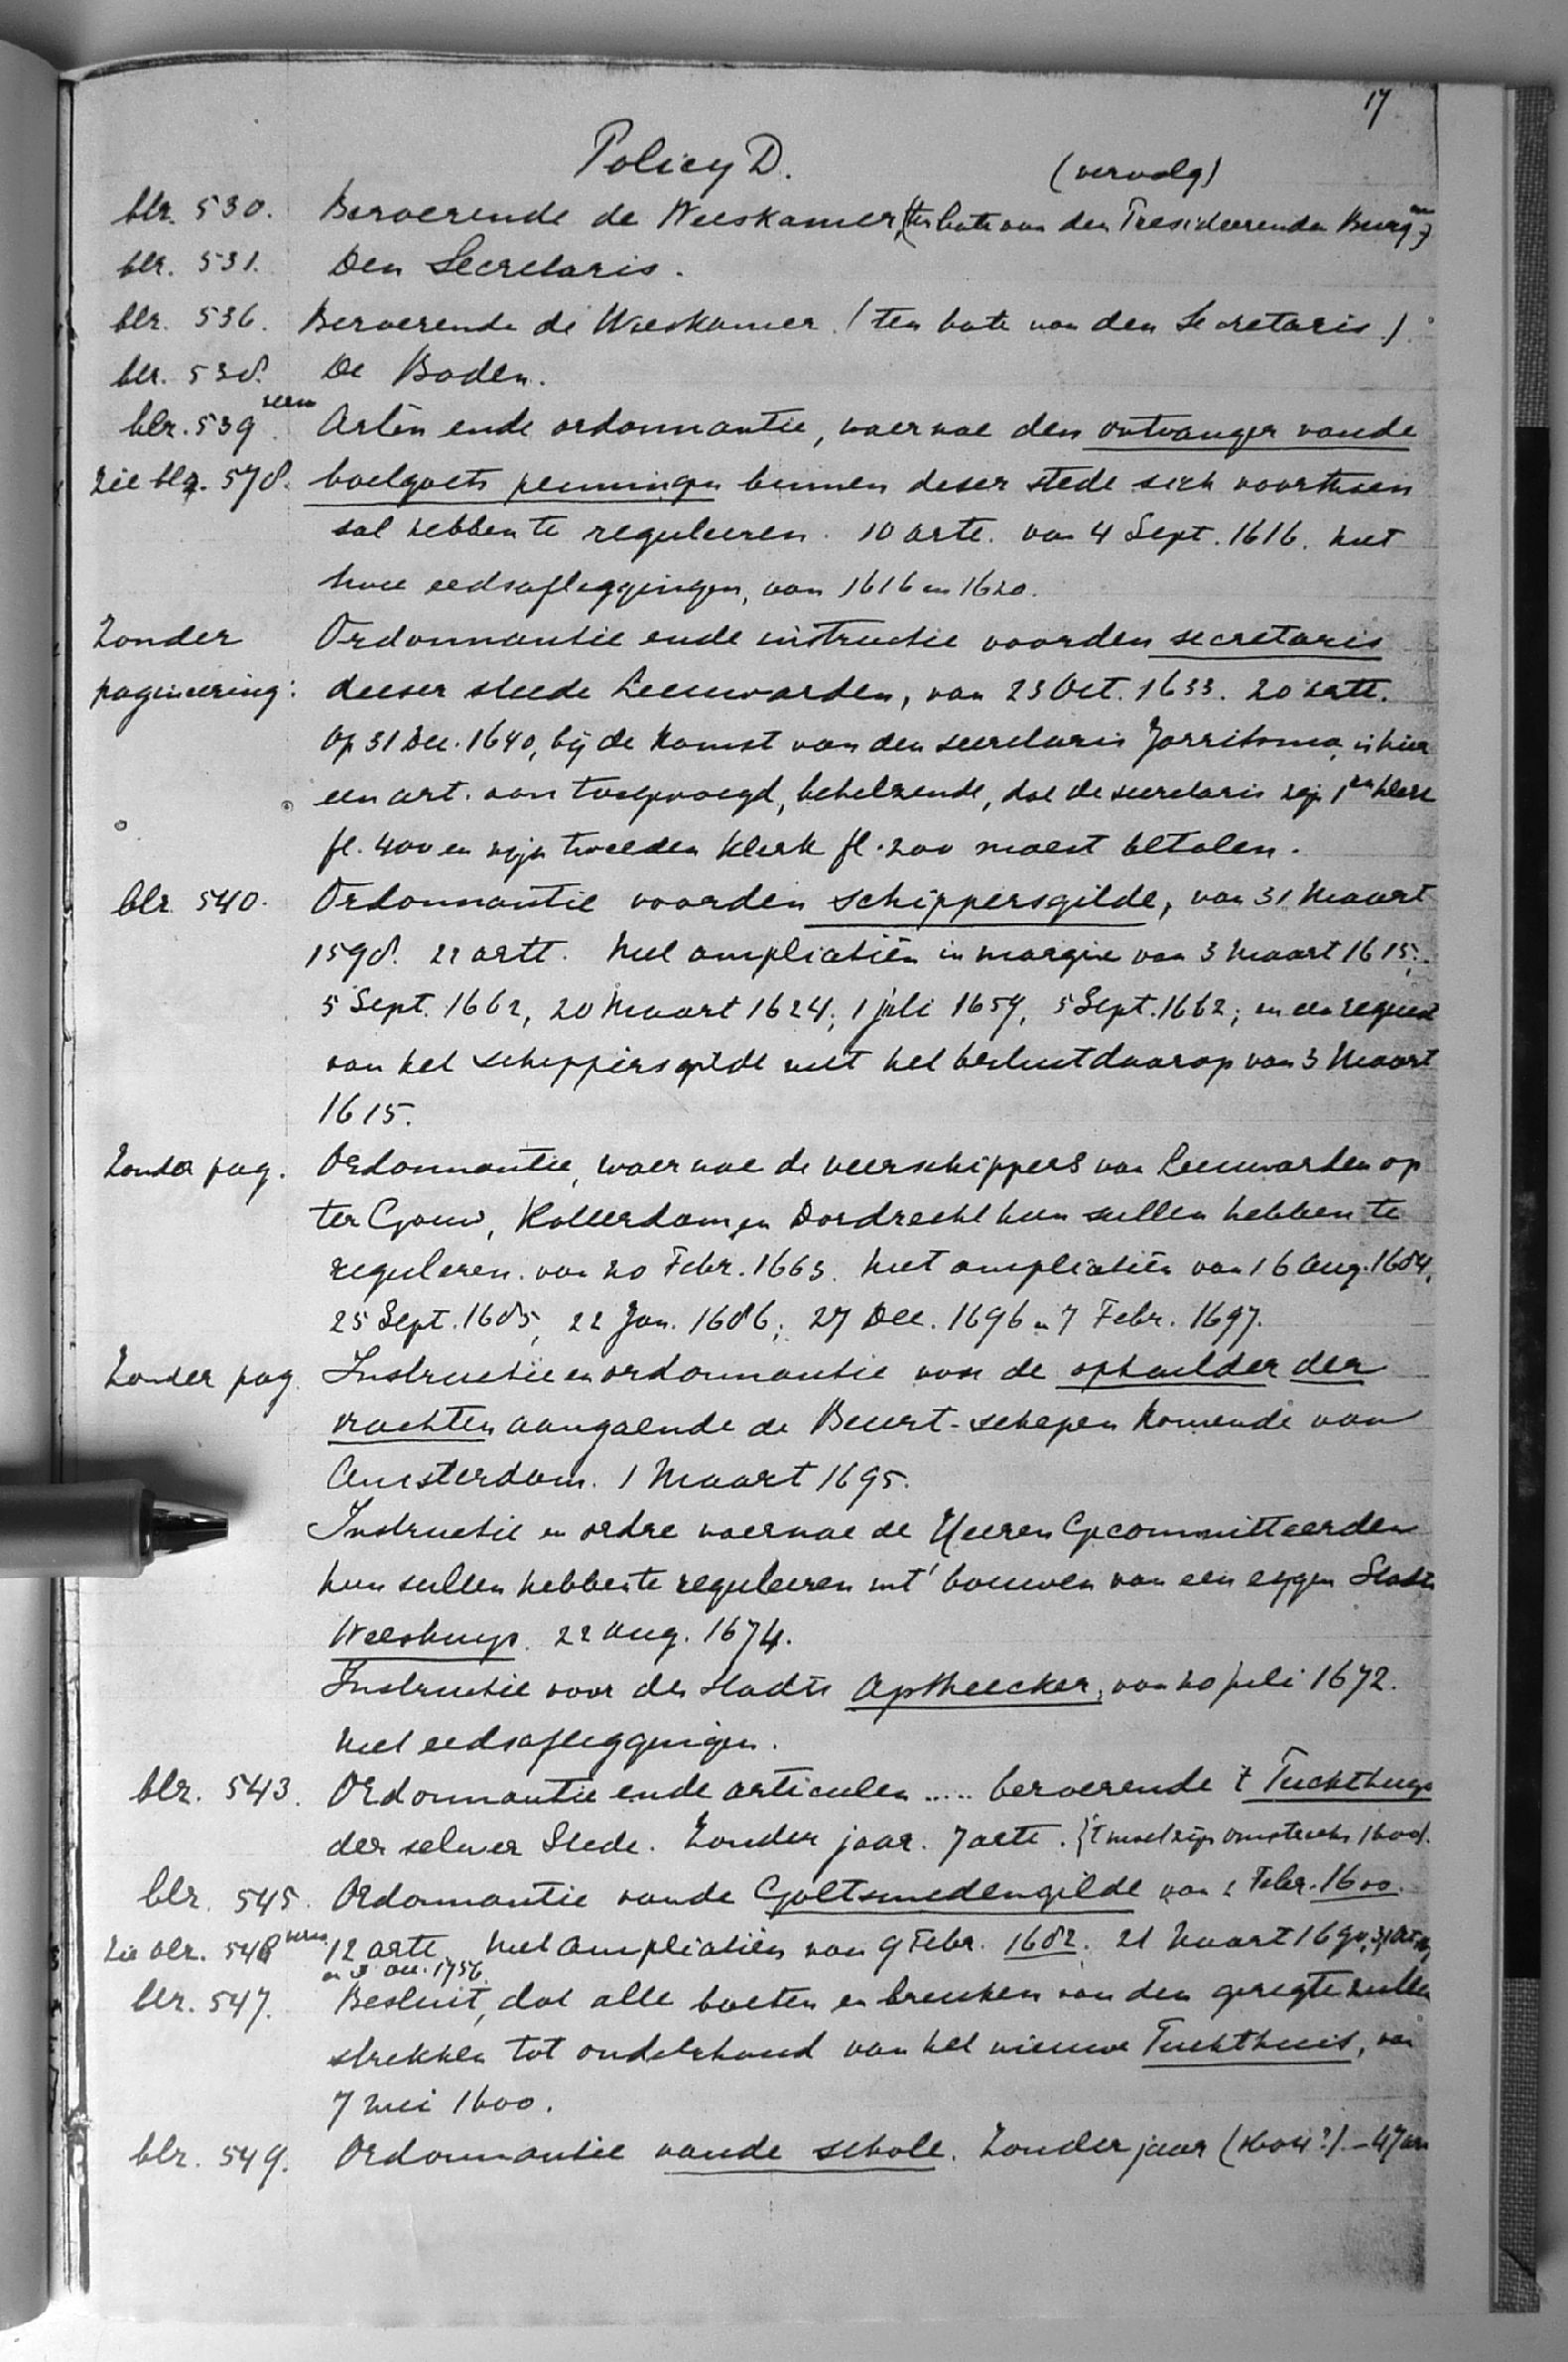 17
Policy D. (vervolg)
blz. 530. Beroerende de Weeskamer, (ten bate van den Presideerenden Burgm)
blz. 531. Den Secretaris.
blz. 536. Beroerende de Weeskamer. (ten bate van den Secretaris).
blz. 538. De Boden.
blz. 539 verso. Artēn ende ordonnantie, waer nae den ontvanger vande
Zie blz. 578. boelgoets penningen binnen deser stede sich voorthien
sal hebben te reguleeren. 10 artt. van 4 Sept. 1616. Met
twee eedsafleggingen, van 1616 en 1620.
Zonder Ordonnantie ende instructie voorden secretaris
pagineering: deeser steede Leeuwarden, van 23 Oct. 1633. 20 artt.
Op 31 Dec. 1640, bij de komst van den secretaris Jorritsma, is hier
een art. aan toegevoegd, behelzende, dat de secretaris zijn 1en klerk
fl. 400 en zijn tweeden klerk fl. 200 moest betalen.
blz. 540. Ordonnantie voorden schippersgilde, van 31 Maart
1598. 22 artt. Met ampliatiën in margine van 3 Maart 1615;
5 Sept. 1662, 20 Maart 1624; 1 juli 1659, 5 Sept. 1662; en een request
van het schippersgilde met het besluit daarop van 3 Maart
1615.
Zonder pag. Ordonnantie, waer nae de veerschippers van Leeuwarden op
ter Gouw, Rotterdam en Dordrecht hun sullen hebben te
reguleren. van 20 Febr. 1663. Met ampliatiën van 16 Aug. 1684,
25 Sept. 1685, 22 Jan. 1686; 27 Dec. 1696 en 7 Febr. 1697.
Zonder pag. Instructie en ordonnantie voor de ophaelder der
vrachten aangaende de Beurt-schepen komende van
Amsterdam. 1 Maart 1695.
Instructie en ordre waernae de Heeren Gecommitteerden
hun sullen hebben te reguleeren int' bouwen van een eygen Stads
Weeshuys. 22 Aug. 1674.
Instructie voor den Stadts Aptheecker, van 20 juli 1672.
Met eedsafleggingen.
blz. 543. Ordonnantie ende articulen ..... beroerende t Tuchthuys
der selver Stede. Zonder jaar. 7 artt. ('t moet zijn omstreeks 1600).
blz. 545. Ordonnantie vande Goltsmedengilde van 2 Febr. 1600.
Zie blz. 548 verso. 12 artt. Met Ampliatiën van 9 Febr. 1682. 21 Maart 1690,
en 3 Dec. 1756.
blz. 547. Besluit, dat alle boeten en breuken van den geregte zullen
strekken tot onderhoud van het nieuwe Tuchthuis, van
7 mei 1600.
blz. 549. Ordonnantie vande schole. Zonder jaar